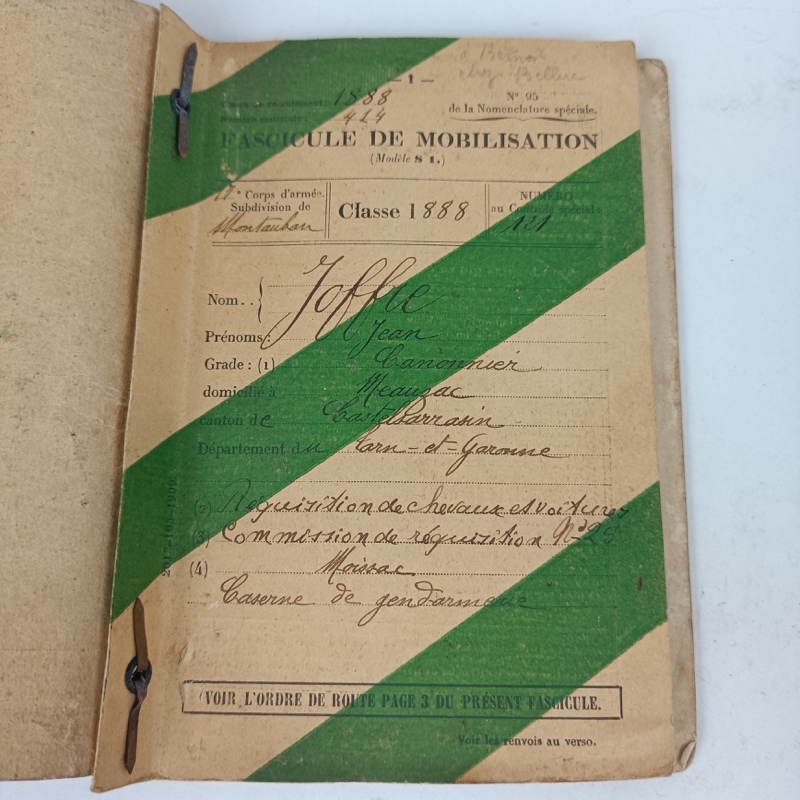 à
chez Bellue
— 1 —
Classe de recrutement : 1888
Numéro matricule : 424
N° 95
de la Nomenclature spéciale.
FASCICULE DE MOBILISATION
(Modèle S 1.)
17e Corps d'armée.
Subdivision de
Montauban
Classe 1888
NUMÉRO
au Contrôle spécial :
121
Nom . . Joffre
Prénoms : Jean
Grade : (1) Canonnier
domicilié à Meauzac
canton de Castelsarrasin
Département du Tarn-et-Garonne
(2) Réquisition de chevaux et voitures
(3) Commission de réquisition N°
(4) Moissac
Caserne de gendarmerie
VOIR L'ORDRE DE ROUTE PAGE 3 DU PRÉSENT FASCICULE.
Voir les renvois au verso.